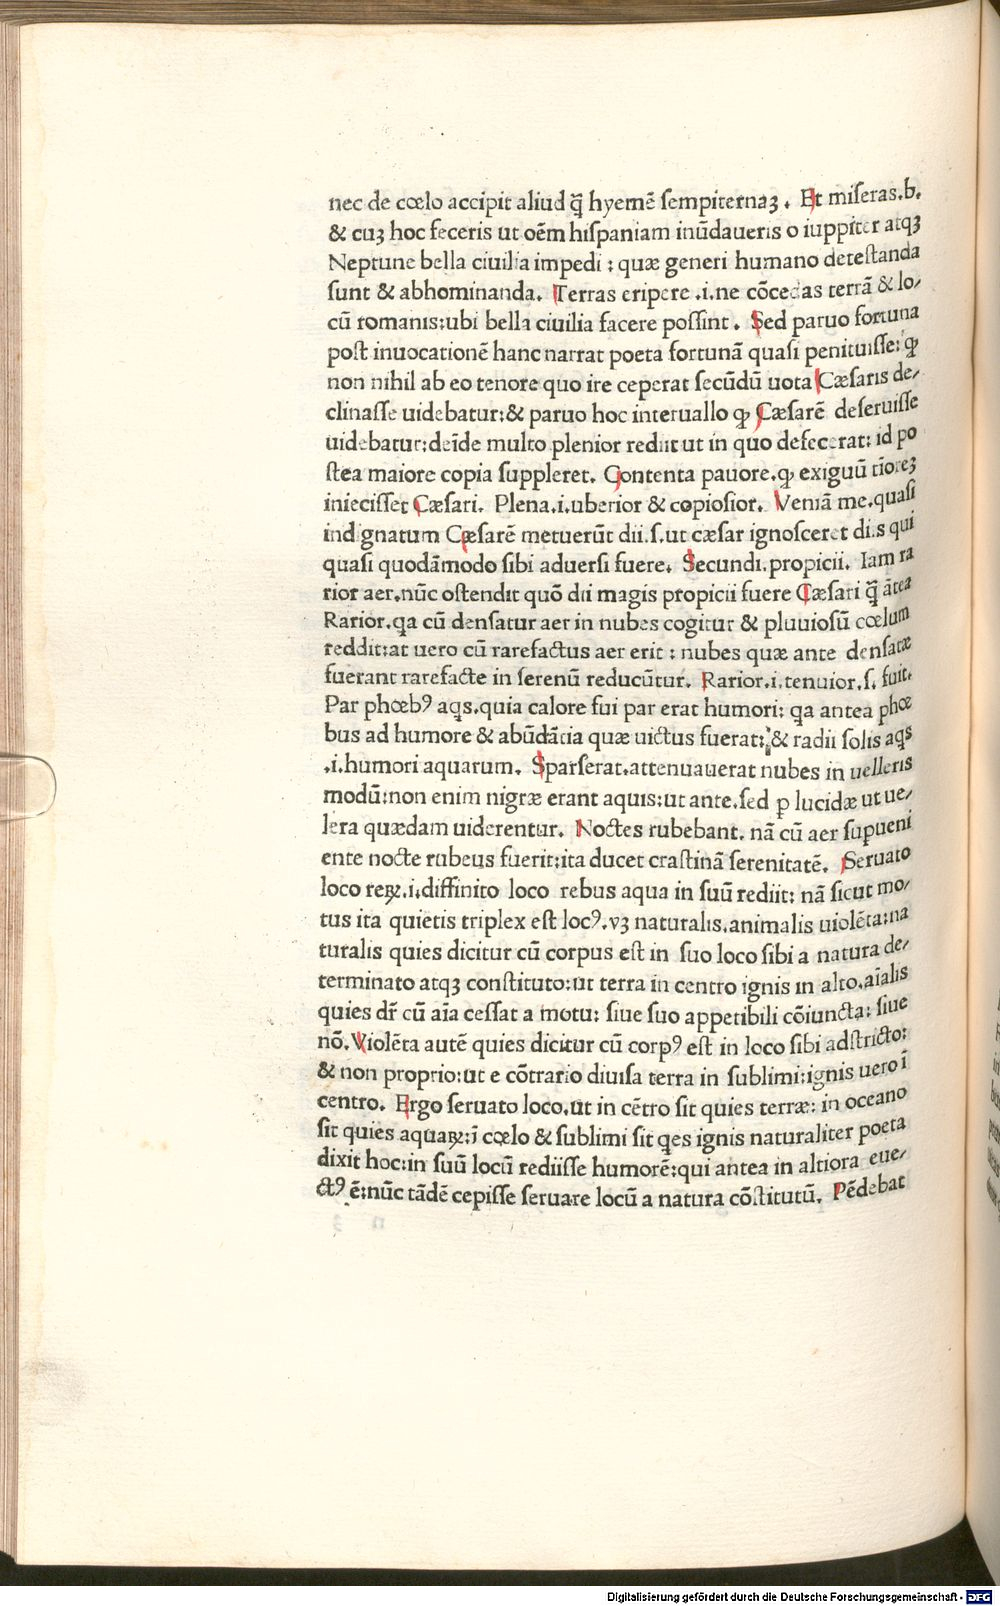 nec de cœlo accipit aliud q̃ hyemẽ ſempiternaꝫ . Et miſeras.b.
& cuꝫ hoc feceris ut oẽm hiſpaniam inũdaueris o iuppiter atqꝫ
Neptune bella ciuilia impedi : quæ generi humano deteſtanda
ſunt & abhominanda. Terras eripere .i.ne cõcedas terrã & lo⸗
cũ romanis:ubi bella ciuilia facere poſſint . Sed paruo fortuna
poſt inuocationẽ hanc narrat poeta fortunã quaſi penituiſſe: ꝙ
non nihil ab eo tenore quo ire ceperat ſecũdũ uota Cæſaris de⸗
clinaſſe uidebatur:& paruo hoc interuallo ꝙ Cæſarẽ deſeruiſſe
uidebatur:deĩde multo plenior rediit ut in quo defecerat: id po
ſtea maiore copia ſuppleret. Contenta pauore.ꝙ exiguũ tĩoreꝫ
inieciſſet Cæſari. Plena.i.uberior & copioſior. Veniã me.quaſi
indignatum Cæſarẽ metuerũt dii.ſ.ut cæſar ignoſceret diis qui
quaſi quodãmodo ſibi aduerſi fuere. Secundi.propicii. Iam ra
rior aer.nũc oſtendit quõ dii magis propicii fuere Cæſari q̃ ãtea
Rarior.qa cũ denſatur aer in nubes cogitur & pluuioſũ cœlum
reddit:at uero cũ rarefactus aer erit : nubes quæ ante denſatæ
fuerant rarefacte in ſerenũ reducũtur. Rarior.i.tenuior.ſ. fuit.
Par phœbꝰ aqs.quia calore ſui par erat humori: qa antea phœ
bus ad humore & abũdãtia quæ uictus fuerat: & radii ſolis aqs
.i.humori aquarum. Sparſerat.attenuauerat nubes in uelleris
modũ:non enim nigræ erant aquis:ut ante.ſed p lucidæ ut ue⸗
lera quædam uiderentur. Noctes rubebant. nã cũ aer ſupueni
ente nocte rubeus fuerit:ita ducet craſtinã ſerenitatẽ. Seruato
loco reꝝ.i.diffinito loco rebus aqua in ſuũ rediit: nã ſicut mo⸗
tus ita quietis triplex eſt locꝰ.vꝫ naturalis.animalis uiolẽta:na
turalis quies dicitur cũ corpus eſt in ſuo loco ſibi a natura de⸗
terminato atqꝫ conſtituto:ut terra in centro ignis in alto.aĩalis
quies dr̃ cũ aĩa ceſſat a motu: ſiue ſuo appetibili cõiuncta: ſiue
nõ. Violẽta autẽ quies dicitur cũ corpꝰ eſt in loco ſibi adſtricto:
& non proprio:ut e cõtrario diuiſa terra in ſublimi:ignis uero ĩ
centro. Ergo ſeruato loco.ut in cẽtro ſit quies terræ: in oceano
ſit quies aquaꝝ:ĩ cœlo & ſublimi ſit qes ignis naturaliter poeta
dixit hoc:in ſuũ locũ rediiſſe humorẽ:qui antea in altiora eue⸗
ctꝰ ẽ:nũc tãdẽ cepiſſe ſeruare locũ a natura cõſtitutũ. Pẽdebat
Digitalisierung gefördert durch die Deutsche Forschungsgemeinschaft - DFG